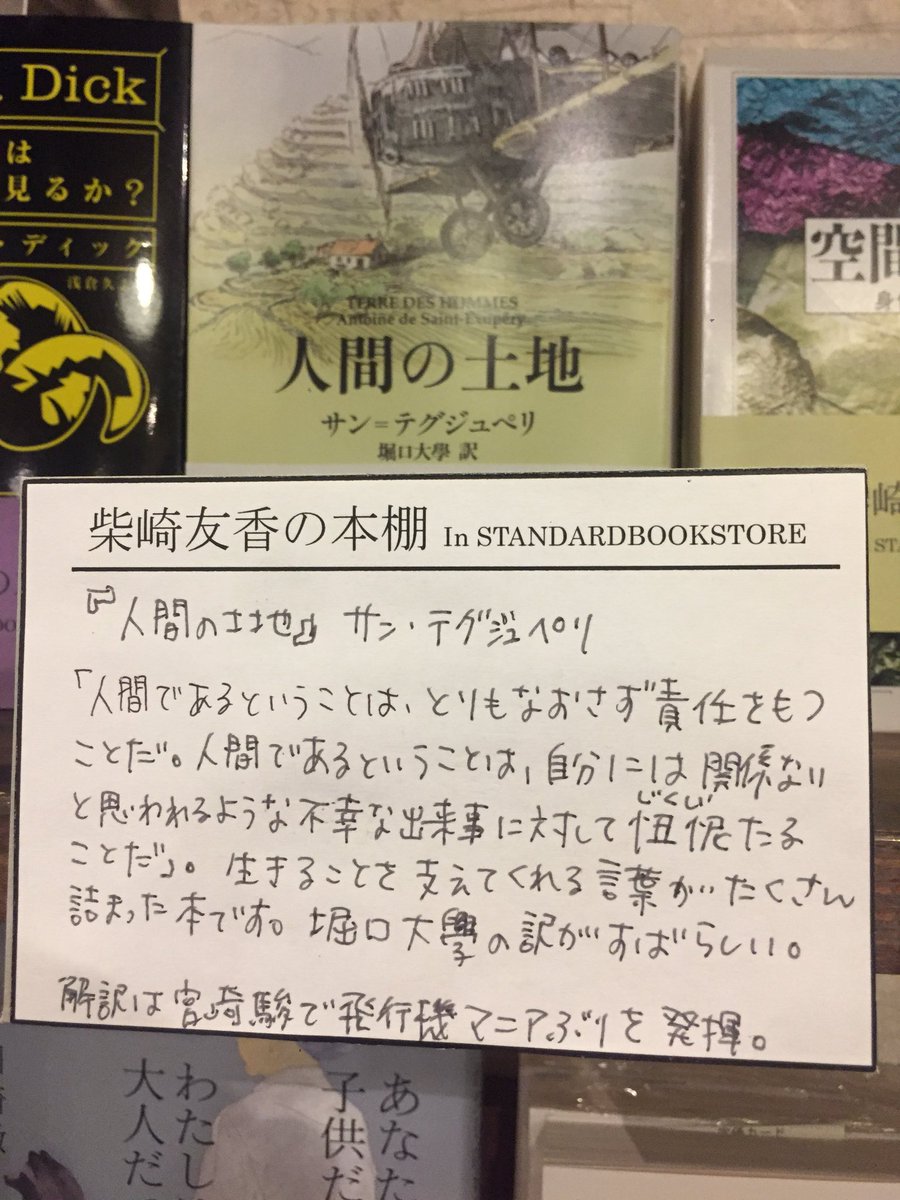 . Dick
は
見るか?
ディック
浅倉久
TERRE DES HOMMES
Antoine de Saint-Exupéry
人間の土地
サン=テグジュペリ
堀口大學 訳
空間
身
柴崎友香の本棚 In STANDARDBOOKSTORE
『人間の土地』 サン・テグジュペリ
「人間であるということは、とりもなおさず責任をもつ
ことだ。人間であるということは、自分には関係ない
と思われるような不幸な出来事に対して忸怩たる
じくじ
ことだ」。生きることを支えてくれる言葉がたくさん
詰まった本です。堀口大學の訳がすばらしい。
解説は宮崎駿で飛行機マニアぶりを発揮。
あなた
子供だ
わたし
大人だ